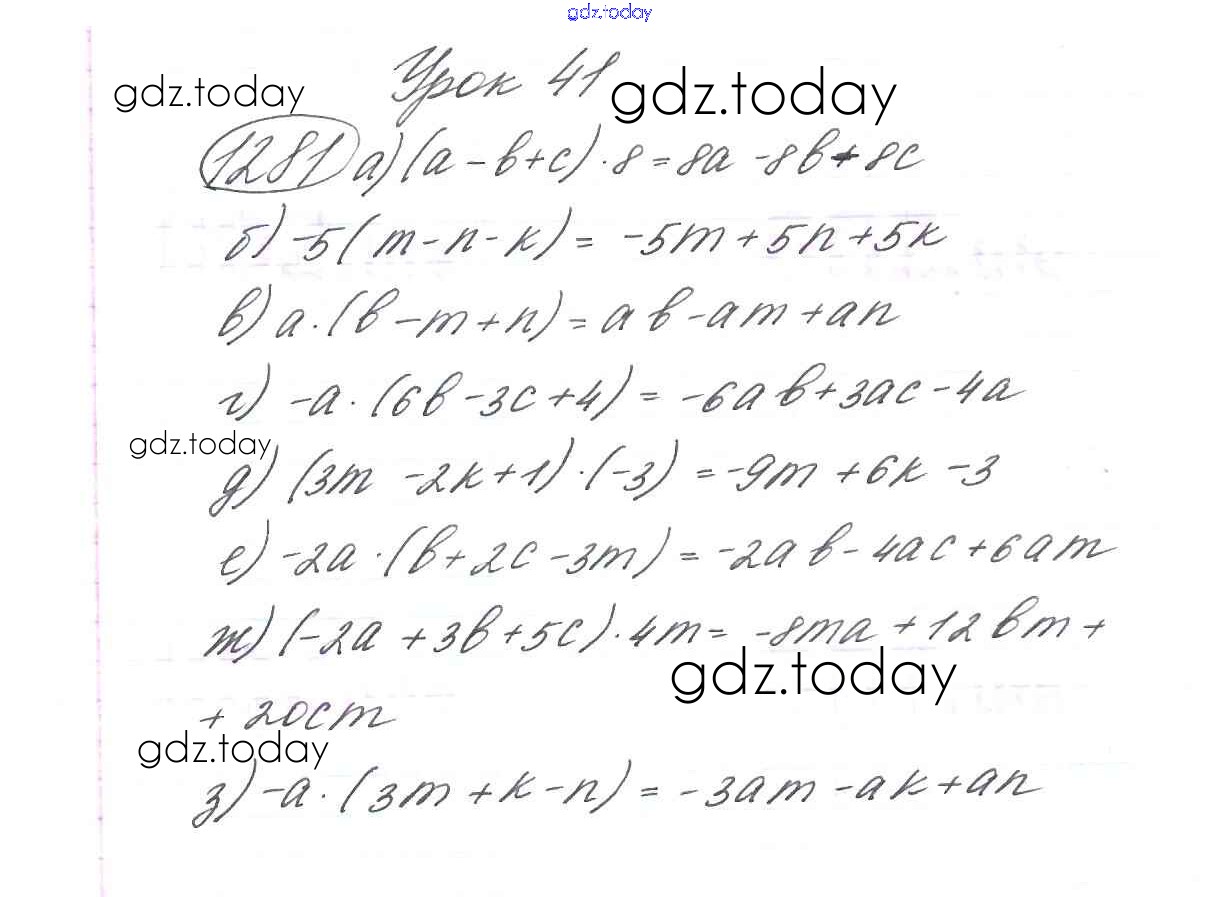 gdz.today
Урок 41
gdz.today
gdz.today
1281 а) (a - b + c) · 8 = 8a - 8b + 8c
б) -5(m - n - k) = -5m + 5n + 5k
в) a · (b - m + n) = ab - am + an
г) -a · (6b - 3c + 4) = -6ab + 3ac - 4a
gdz.today
д) (3m - 2k + 1) · (-3) = -9m + 6k - 3
е) -2a · (b + 2c - 3m) = -2ab - 4ac + 6am
ж) (-2a + 3b + 5c) · 4m = -8ma + 12bm +
gdz.today
+ 20cm
gdz.today
з) -a · (3m + k - n) = -3am - ak + an